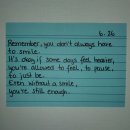 6.26
Remember, you don't always have
to smile.
It's okay if some days feel heavier,
you're allowed to feel, to pause,
to just be.
Even without a smile,
you're still enough.